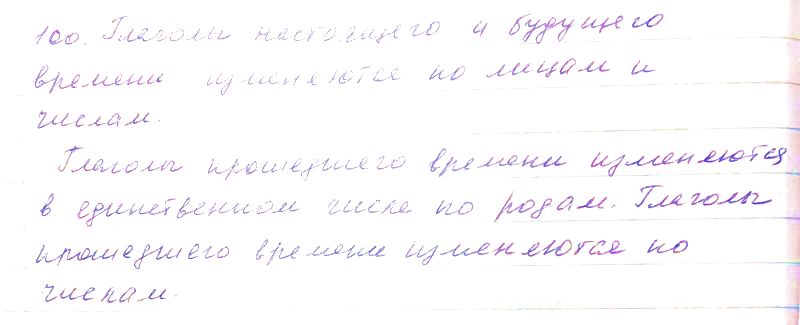 100. Глаголы настоящего и будущего
времени изменяются по лицам и
числам.
Глаголы прошедшего времени изменяются
в единственном числе по родам. Глаголы
прошедшего времени изменяются по
числам.